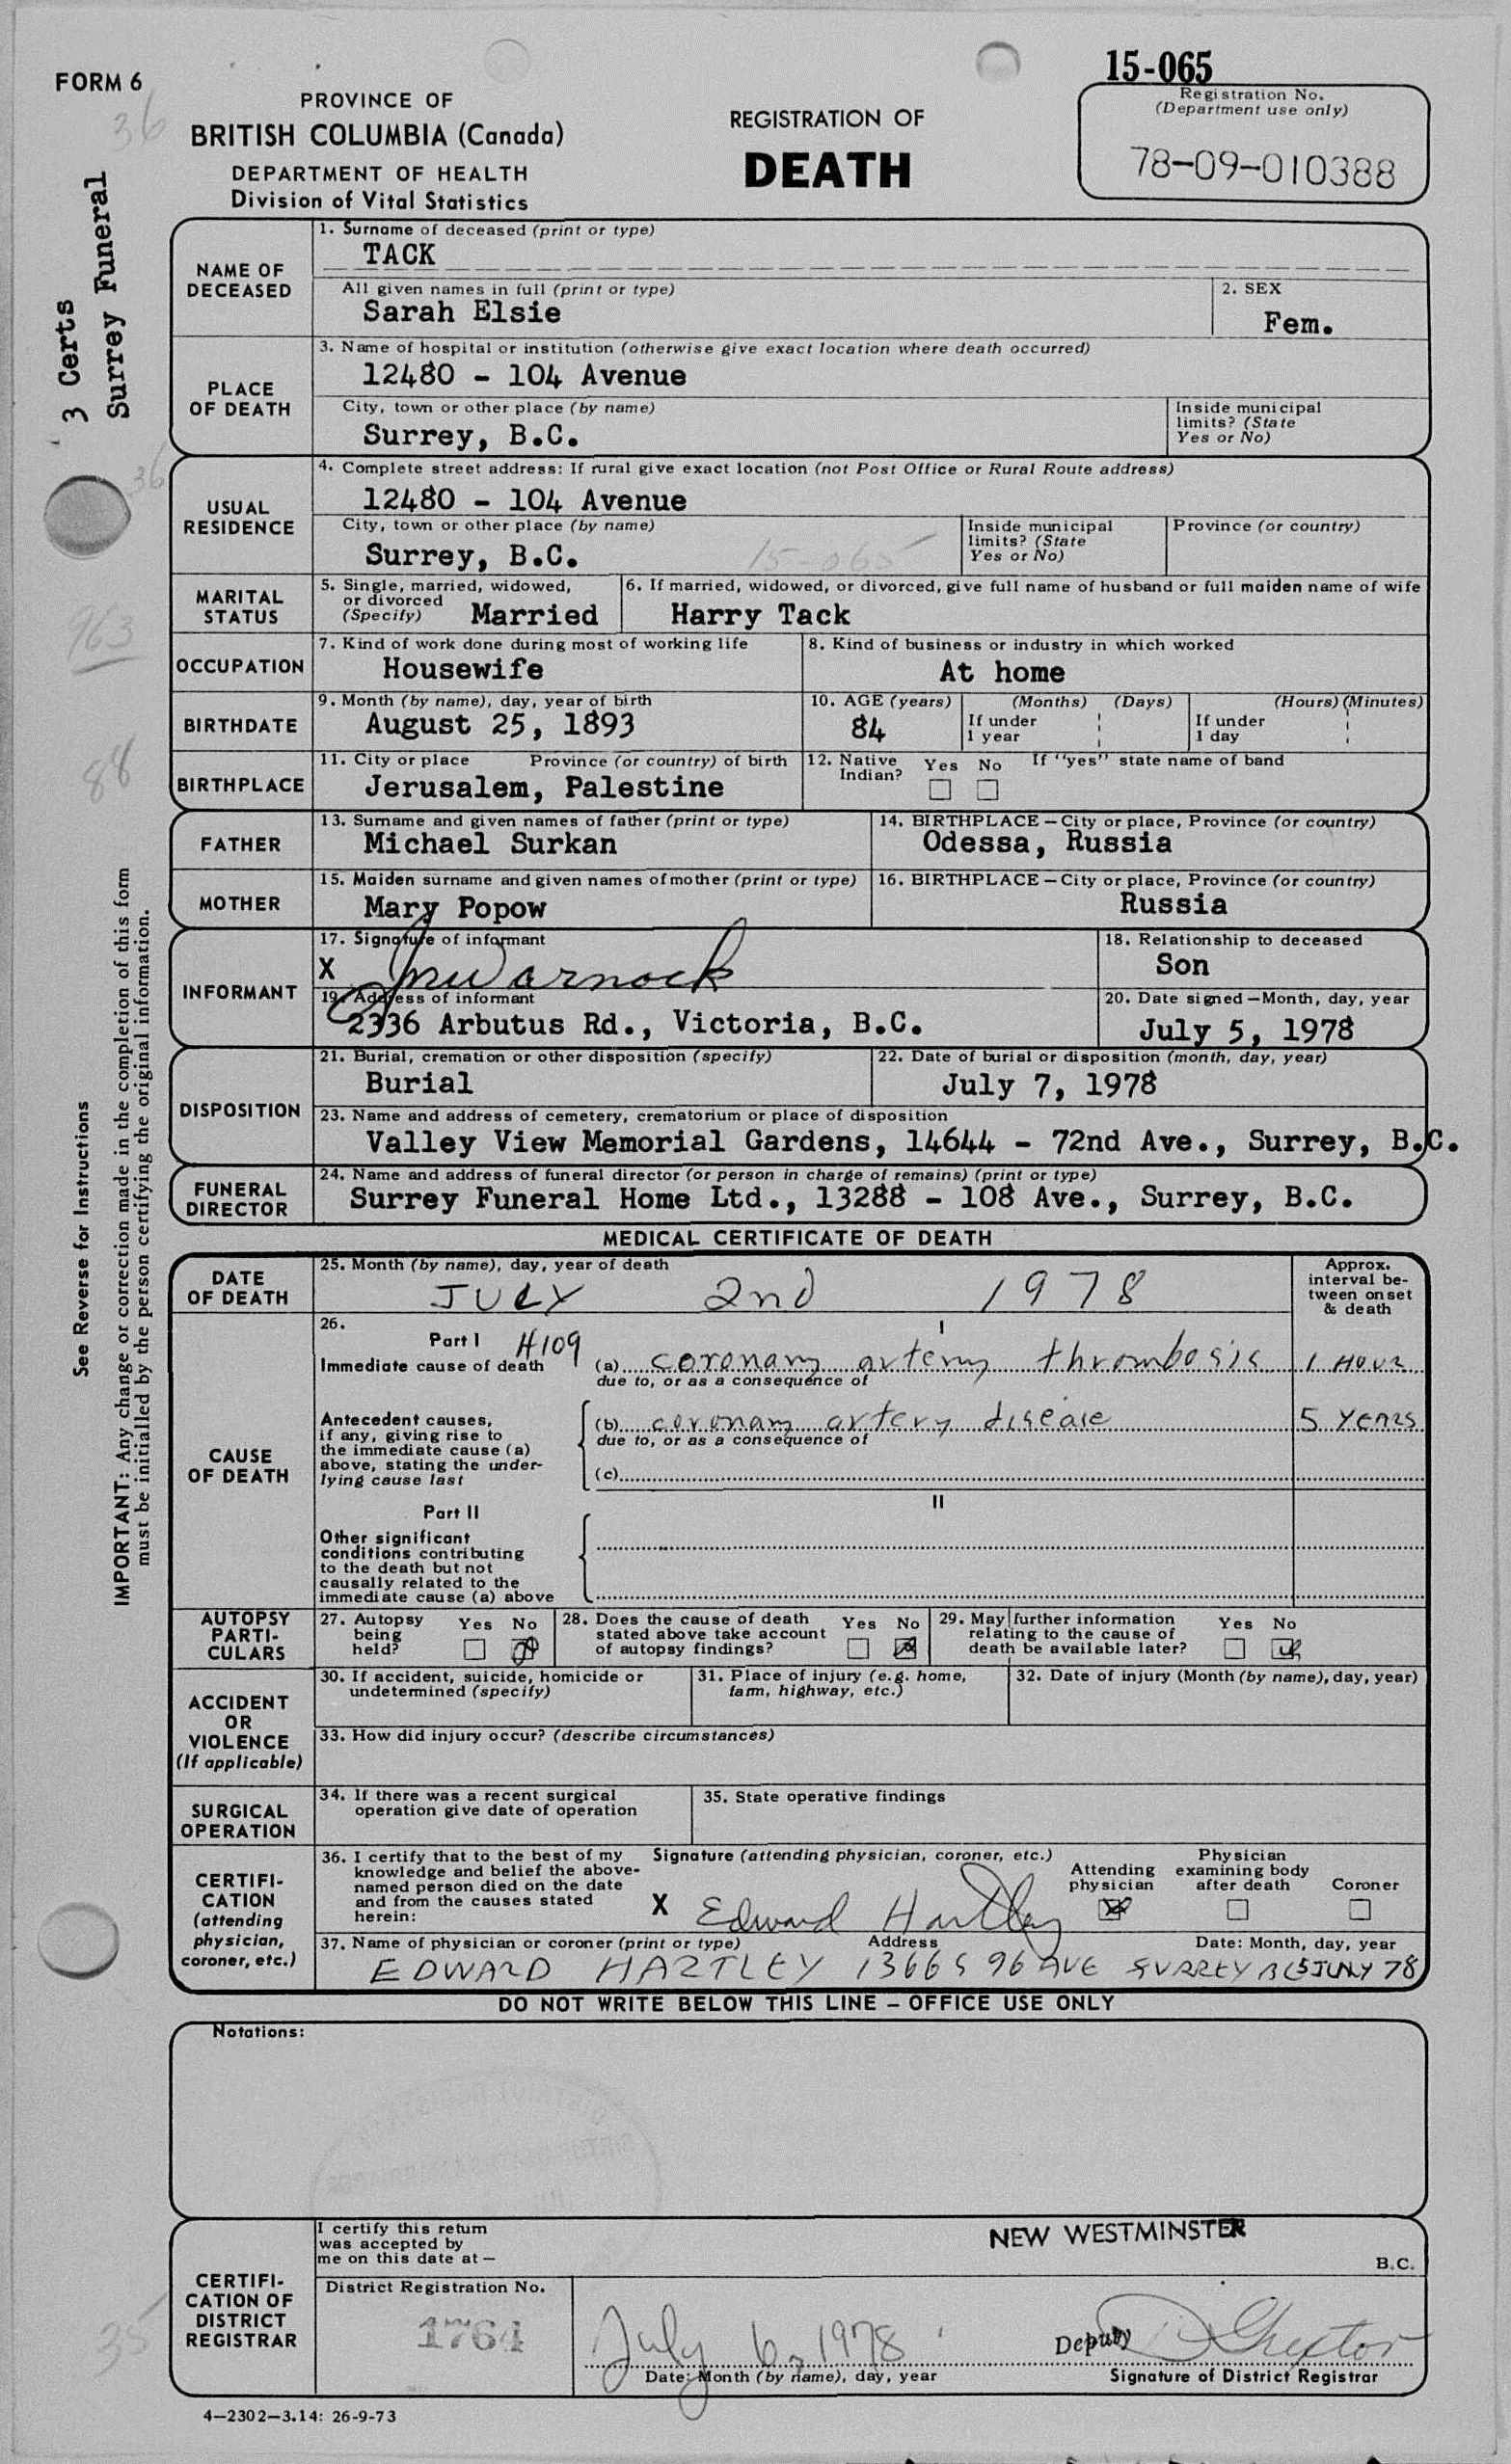 15-065
FORM 6
PROVINCE OF
BRITISH COLUMBIA (Canada)
DEPARTMENT OF HEALTH
Division of Vital Statistics
REGISTRATION OF
DEATH
Registration No.
(Department use only)
78-09-010388
36
3 Certs
Surrey Funeral
36
963
88
See Reverse for Instructions
IMPORTANT: Any change or correction made in the completion of this form
must be initialled by the person certifying the original information.
35
NAME OF
DECEASED
1. Surname of deceased (print or type)
TACK
All given names in full (print or type)
Sarah Elsie
2. SEX
Fem.
PLACE
OF DEATH
3. Name of hospital or institution (otherwise give exact location where death occurred)
12480 - 104 Avenue
City, town or other place (by name)
Surrey, B.C.
Inside municipal
limits? (State
Yes or No)
USUAL
RESIDENCE
4. Complete street address: If rural give exact location (not Post Office or Rural Route address)
12480 - 104 Avenue
City, town or other place (by name)
Surrey, B.C.
15-065
Inside municipal
limits? (State
Yes or No)
Province (or country)
MARITAL
STATUS
5. Single, married, widowed,
or divorced
(Specify) Married
6. If married, widowed, or divorced, give full name of husband or full maiden name of wife
Harry Tack
OCCUPATION
7. Kind of work done during most of working life
Housewife
8. Kind of business or industry in which worked
At home
BIRTHDATE
9. Month (by name), day, year of birth
August 25, 1893
10. AGE (years)
84
(Months) (Days)
If under
1 year
(Hours) (Minutes)
If under
1 day
BIRTHPLACE
11. City or place Province (or country) of birth
Jerusalem, Palestine
12. Native
Indian?
Yes No
If "yes" state name of band
FATHER
13. Surname and given names of father (print or type)
Michael Surkan
14. BIRTHPLACE - City or place, Province (or country)
Odessa, Russia
MOTHER
15. Maiden surname and given names of mother (print or type)
Mary Popow
16. BIRTHPLACE - City or place, Province (or country)
Russia
INFORMANT
17. Signature of informant
X Warnock
18. Relationship to deceased
Son
19. Address of informant
2336 Arbutus Rd., Victoria, B.C.
20. Date signed - Month, day, year
July 5, 1978
DISPOSITION
21. Burial, cremation or other disposition (specify)
Burial
22. Date of burial or disposition (month, day, year)
July 7, 1978
23. Name and address of cemetery, crematorium or place of disposition
Valley View Memorial Gardens, 14644 - 72nd Ave., Surrey, B.C.
FUNERAL
DIRECTOR
24. Name and address of funeral director (or person in charge of remains) (print or type)
Surrey Funeral Home Ltd., 13288 - 108 Ave., Surrey, B.C.
MEDICAL CERTIFICATE OF DEATH
DATE
OF DEATH
25. Month (by name), day, year of death
JULY 2nd 1978
Approx.
interval be-
tween onset
& death
CAUSE
OF DEATH
26.
Part I H109
I
Immediate cause of death
(a) coronary artery thrombosis 1 HOUR
due to, or as a consequence of
Antecedent causes,
if any, giving rise to
the immediate cause (a)
above, stating the under-
lying cause last
(b) coronary artery disease 5 YEARS
due to, or as a consequence of
(c)
Part II
II
Other significant
conditions contributing
to the death but not
causally related to the
immediate cause (a) above
AUTOPSY
PARTI-
CULARS
27. Autopsy
being
held?
Yes No
28. Does the cause of death
stated above take account
of autopsy findings?
Yes No
29. May further information
relating to the cause of
death be available later?
Yes No
ACCIDENT
OR
VIOLENCE
(If applicable)
30. If accident, suicide, homicide or
undetermined (specify)
31. Place of injury (e.g. home,
farm, highway, etc.)
32. Date of injury (Month (by name), day, year)
33. How did injury occur? (describe circumstances)
SURGICAL
OPERATION
34. If there was a recent surgical
operation give date of operation
35. State operative findings
CERTIFI-
CATION
(attending
physician,
coroner, etc.)
36. I certify that to the best of my
knowledge and belief the above-
named person died on the date
and from the causes stated
herein:
Signature (attending physician, coroner, etc.)
X Edward Hartley
Attending
physician
Physician
examining body
after death
Coroner
37. Name of physician or coroner (print or type) Address Date: Month, day, year
EDWARD HARTLEY 13665 96 AVE SURREY BC 5 JULY 78
DO NOT WRITE BELOW THIS LINE - OFFICE USE ONLY
Notations:
CERTIFI-
CATION OF
DISTRICT
REGISTRAR
I certify this return
was accepted by
me on this date at -
NEW WESTMINSTER
B.C.
District Registration No.
1764
July 6, 1978
Date: Month (by name), day, year
Deputy
Signature of District Registrar
4-2302-3.14: 26-9-73